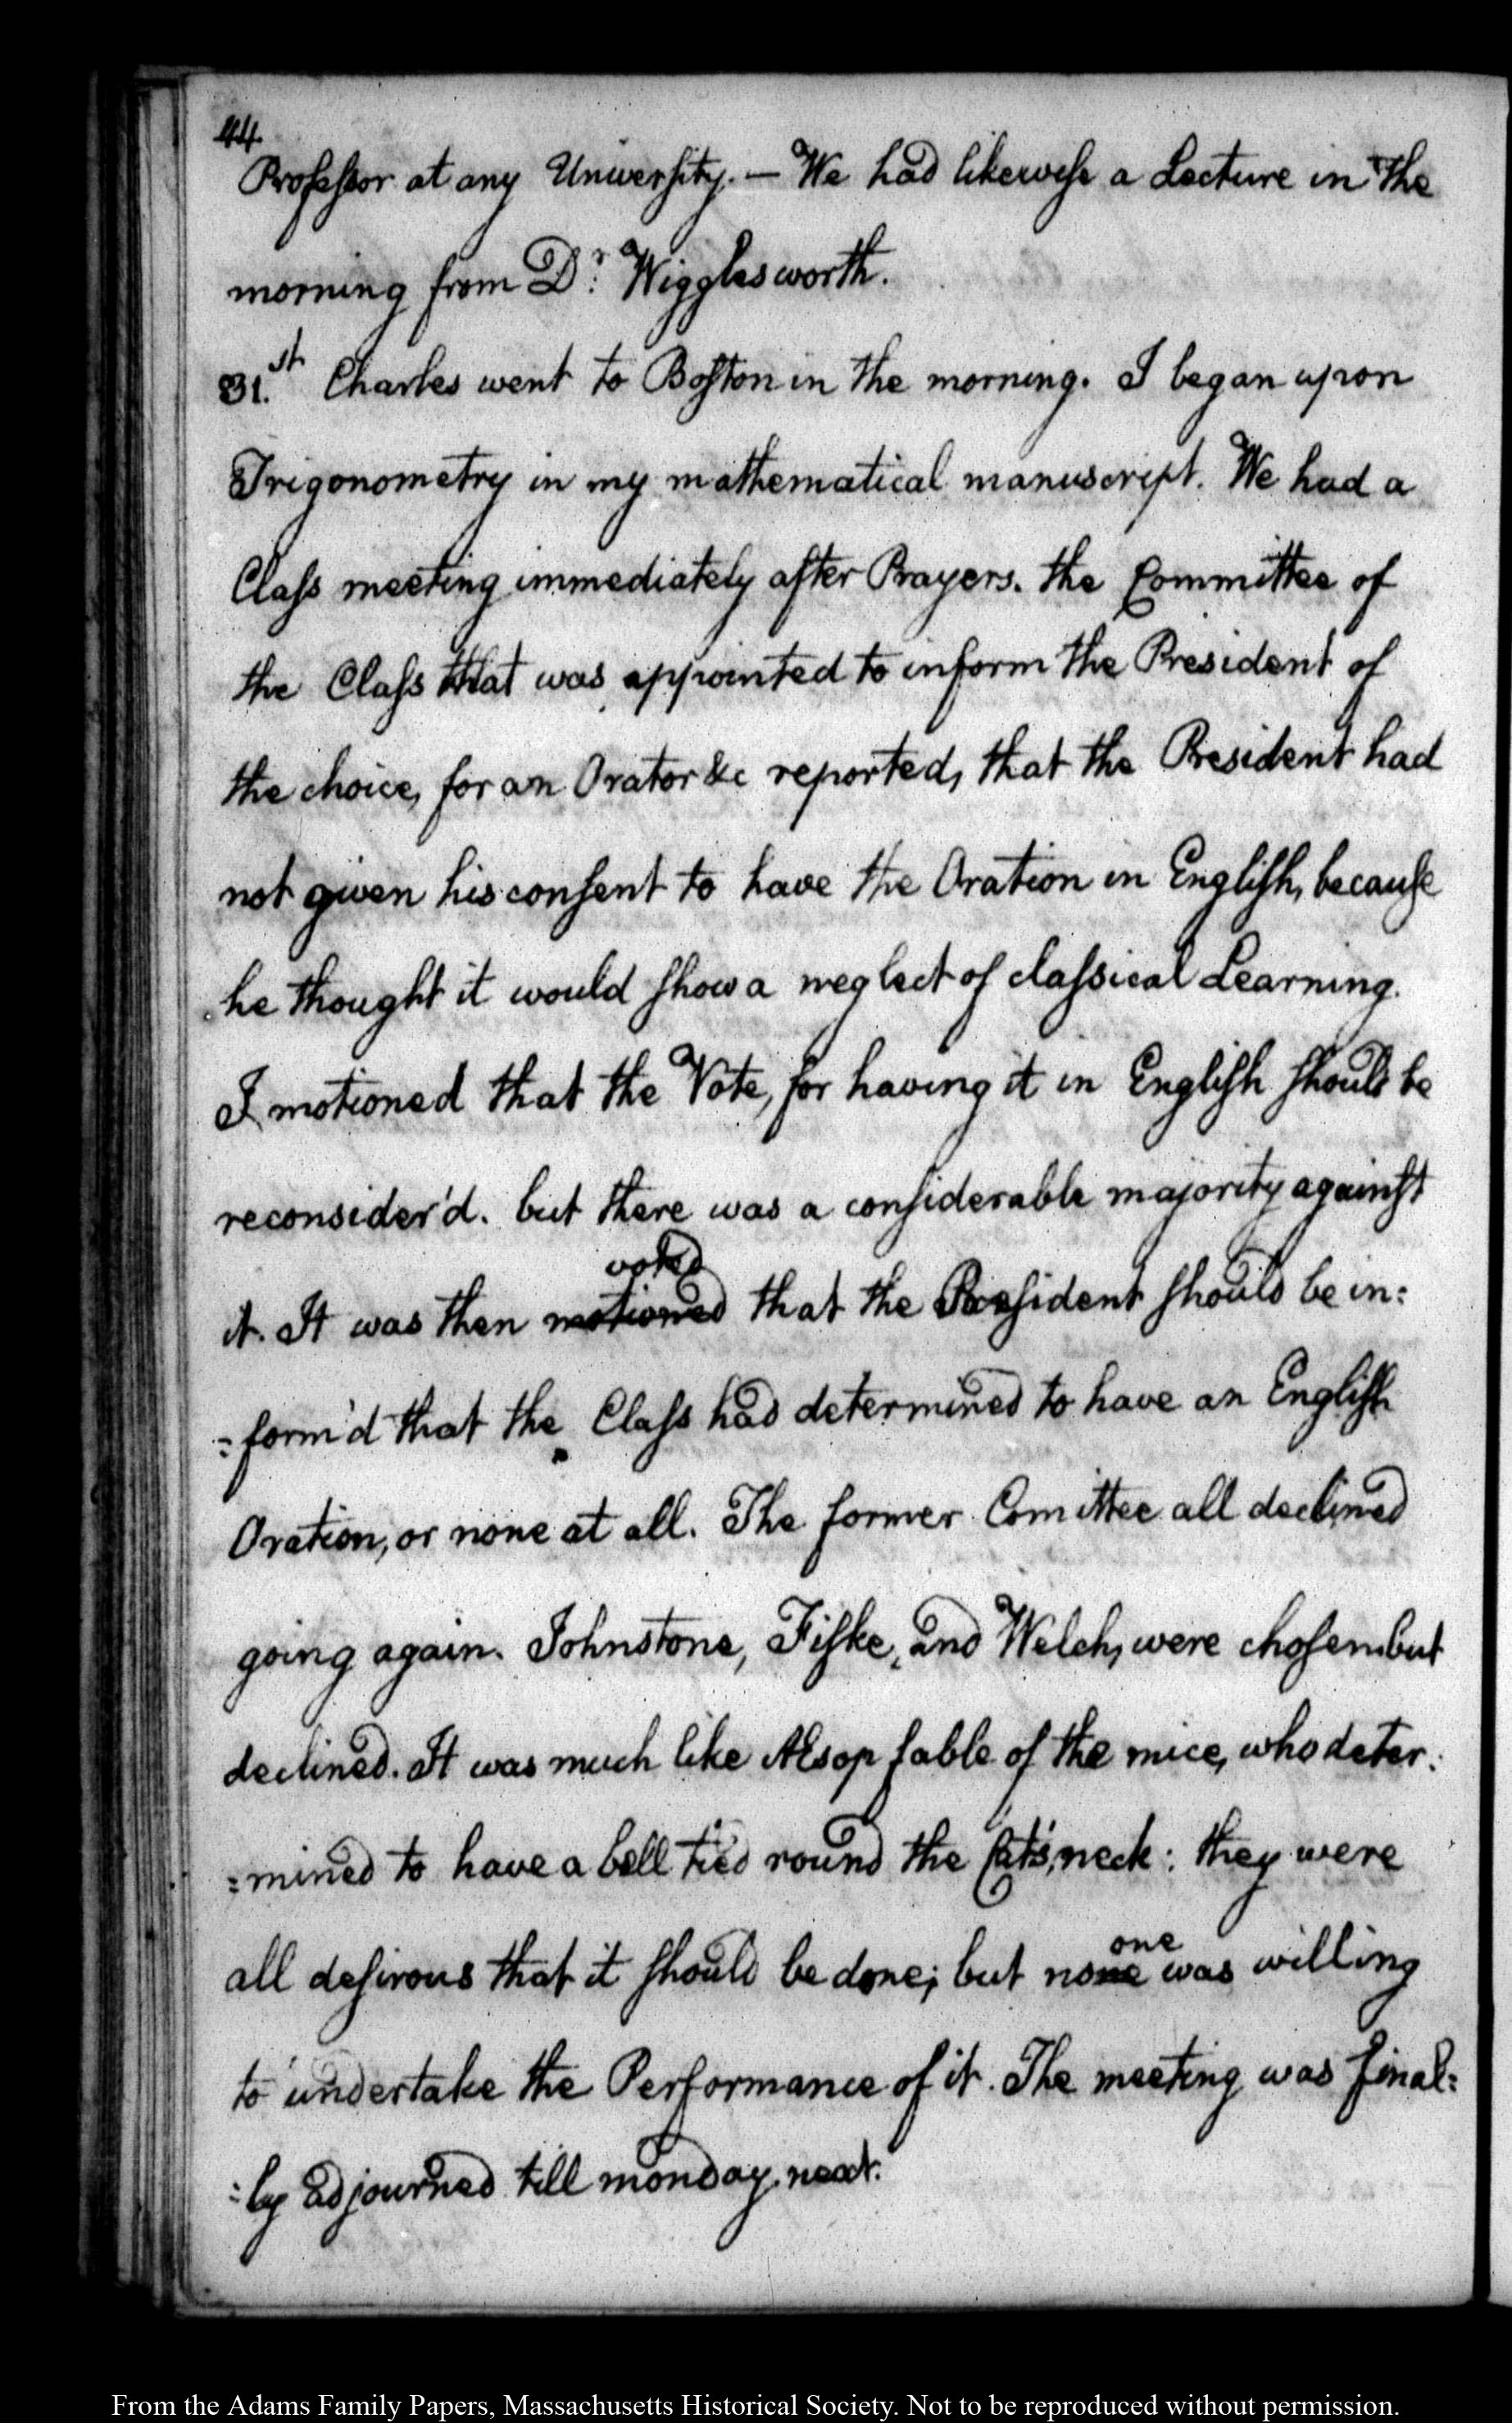 44.
Professor at any University. — We had likewise a Lecture in the
morning from Dr: Wigglesworth.
31.st Charles went to Boston in the morning. I began upon
Trigonometry in my mathematical manuscript. We had a
Class meeting immediately after Prayers. the Committee of
the Class that was appointed to inform the President of
the choice, for an Orator &c reported, that the President had
not given his consent to have the Oration in English, because
he thought it would show a neglect of classical Learning.
I motioned that the Vote, for having it in English should be
reconsider'd. but there was a considerable majority against
voted
it. It was then motioned that the President should be in:
=form'd that the Class had determined to have an English
Oration, or none at all. The former Comittee all declined
going again. Johnstone, Fiske, and Welch, were chosen but
declined. It was much like Æsop fable of the mice, who deter:
=mined to have a bell tied round the Cat's neck: they were
one
all desirous that it should be done; but none was willing
to undertake the Performance of it. The meeting was final:
:ly adjourned till monday next.
From the Adams Family Papers, Massachusetts Historical Society. Not to be reproduced without permission.